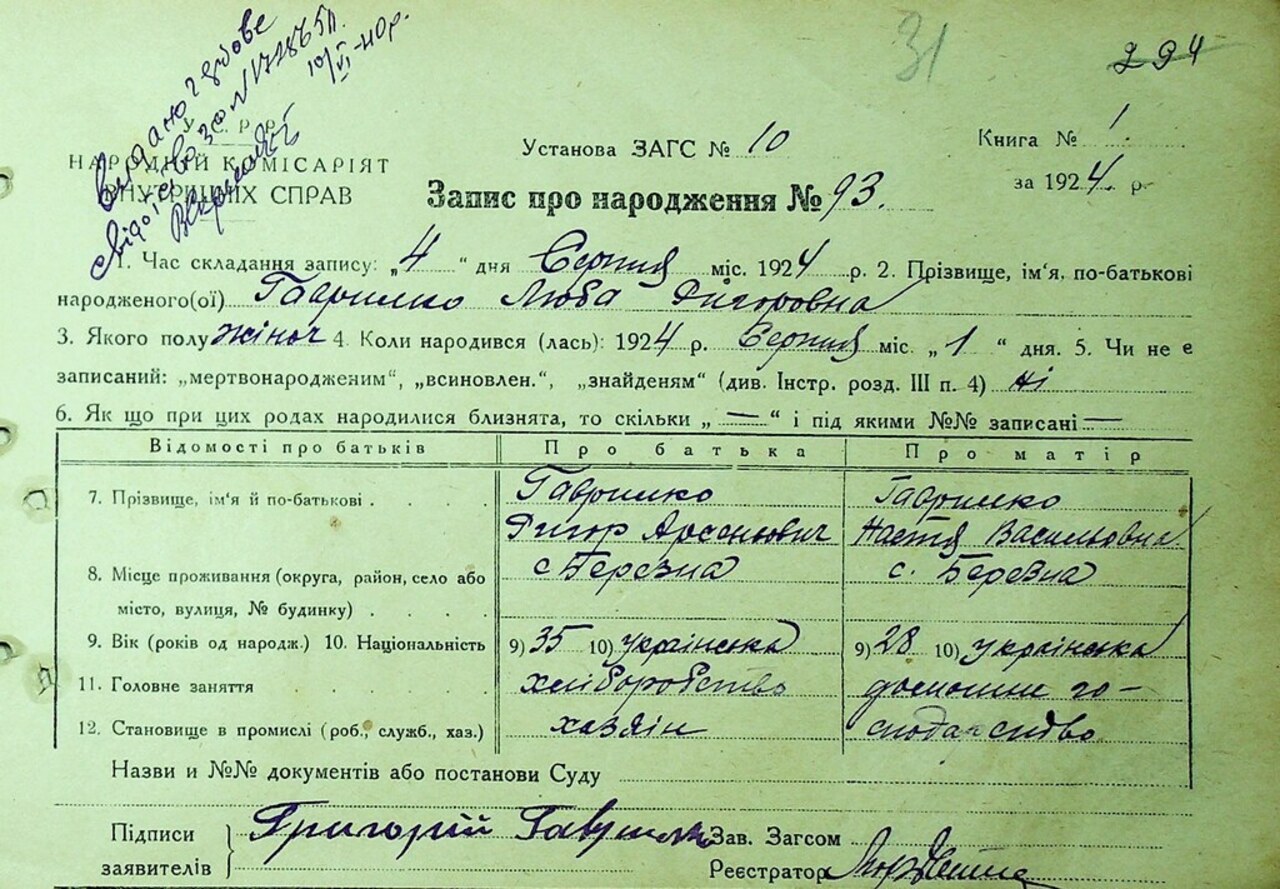 Видано удове
свідоцтво за №
10/VI-40 р.
31
294
У. С. Р. Р.
НАРОДНІЙ КОМІСАРІЯТ
ВНУТРІШНІХ СПРАВ
Установа ЗАГС № 10
Книга № 1
за 1924 р.
Запис про народження № 93.
1. Час складання запису: „4“ дня Серпня міс. 1924 р. 2. Прізвище, ім'я, по-батькові
народженого(ої) Гаврилко Люба Григоровна
3. Якого полу жіноч 4. Коли народився (лась): 1924 р. Серпня міс. „1“ дня. 5. Чи не є
записаний: „мертвонародженим“, „всиновлен.“, „знайденям“ (див. Інстр. розд. III п. 4) ні
6. Як що при цих родах народилися близнята, то скільки „—“ і під якими №№ записані —
Відомості про батьків Про батька Про матір
7. Прізвище, ім'я й по-батькові . . . . Гаврилко Гаврилко
Григор Арсеньович Настя Васильовна
8. Місце проживання (округа, район, село або с Березна с. Березна
місто, вулиця, № будинку) . . . .
9. Вік (років од народж.) 10. Національність 9) 35 10) українська 9) 28 10) українська
11. Головне заняття . . . . хліборобство домошне го-
12. Становище в промислі (роб., служб., хаз.) хазяін сподарство
Назви и №№ документів або постанови Суду
Підписи
заявителів } Григорій Гаврилко
Зав. Загсом
Реєстратор